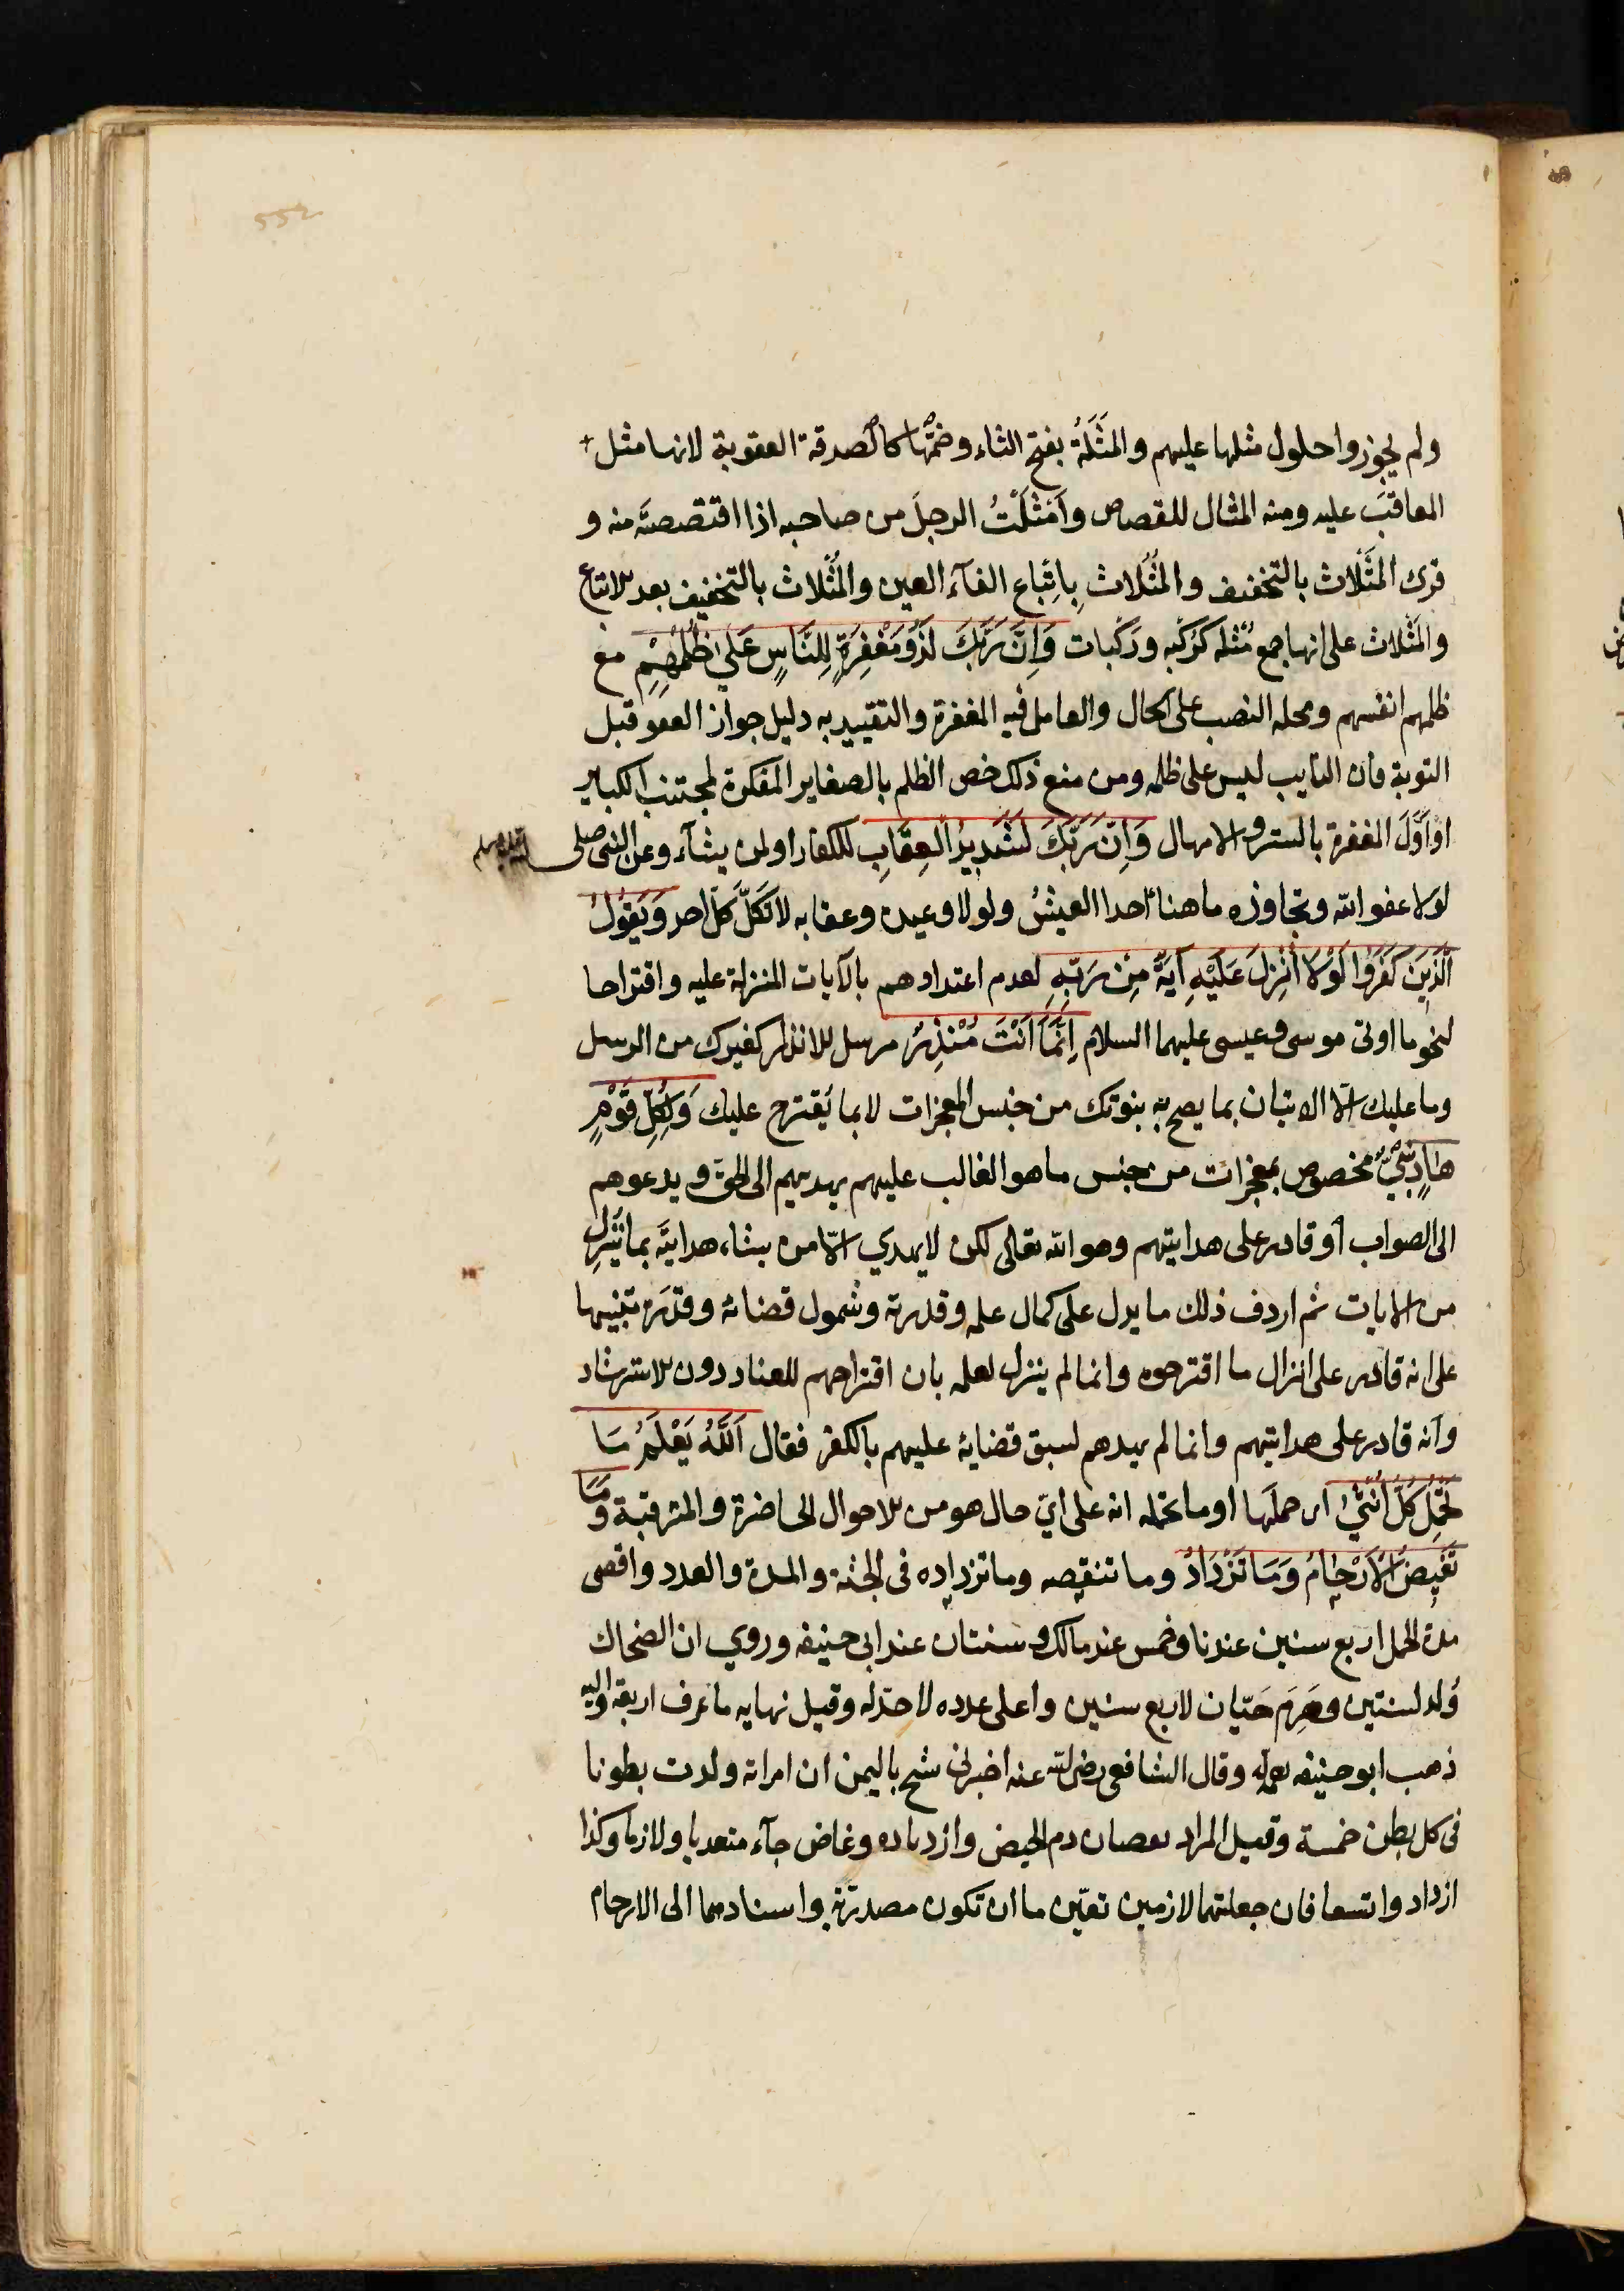 ولم يجوزوا حلول مثلها عليهم والمَثُلَةُ بفتح الثاء وضمّها كالصدقة العقوبة لانها مثل
المعاقَبَ عليه ومنه المثال للقصاص وأَمْثَلْتُ الرجلَ من صاحبه اذا اقتصصته منه و
قرئ المَثْلاث بالتخفيف والمُثُلاث بِاِتْباع الفآء العين والمُثْلاث بالتخفيف بعد الاتباع
والمُثَلاث على انها جمع مُثْله كرُكبه ورَكَبات وَاِنَّ رَبَّكَ لَذُو مَغْفِرَةٍ لِلنَّاسِ عَلَى ظُلْمِهِمْ مع
ظلمهم انفسهم ومحله النصب على الحال والعامل فيه المغفرة والتقييد به دليل جواز العفو قبل
التوبة فان التايب ليس على ظلمه ومن منع ذلك خص الظلم بالصغاير المكفرة لمجتنب الكباير
او أوّلَ المغفرة بالستر والامهال وَاِنَّ رَبَّكَ لَشَدِيدُ الْعِقَابِ للكفار او لمن يشآء وعن النبي صلى الله عليه وسلم
لولا عفو الله وتجاوزه ما هنأ احدا العيشُ ولولا وعيده وعقابه لاتكَلَ كلّ احد وَيَقُولُ
الَّذِينَ كَفَرُوا لَوْلَا اُنْزِلَ عَلَيْهِ آيَةٌ مِنْ رَبِّهِ لعدم اعتدادهم بالآيات المنزلة عليه واقتراحا
لنحو ما اوتى موسى وعيسى عليهما السلام اِنَّمَا اَنْتَ مُنْذِرٌ مرسل للانذار كغيرك من الرسل
وما عليك الا الاتيان بما يصح به نبوتك من جنس المعجزات لا بما يُقترح عليك وَلِكُلِّ قَوْمٍ
هَادٍ نبيّ مخصوص بمعجزات من جنس ما هو الغالب عليهم يهديهم الى الحق ويدعوهم
الى الصواب أو قادر على هدايتهم وهو الله تعالى لكن لا يهدي الّا من يشاء هدايته بما يُنزل
من الايات ثم اردف ذلك ما يدل على كمال علمه وقدرته وشمول قضائه وقدَره تنبيها
على انه قادر على انزال ما اقترحوه وانما لم ينزل لعلمه بان اقتراحهم للعناد دون الاسترشاد
وأنه قادر على هدايتهم وانما لم يهدهم لسبق قضايه عليهم بالكفر فقال اَللَّهُ يَعْلَمُ مَا
تَحْمِلُ كُلُّ اُنْثَى اى حملَها او ما تحمله انه على ايّ حال هو من الاحوال الحاضرة والمترقبة وَمَا
تَغِيضُ الْاَرْحَامُ وَمَا تَزْدَادُ وما تنقصه وما تزداده فى الجثة والمدة والعدد واقصى
مدة الحمل اربع سنين عندنا وخمس عند مالك وسنتان عند ابى حنيفه وروي ان الضحاك
وُلد لسنتين وهَرِمَ حَيّان لاربع سنين واعلى عدده لا حدّ له وقيل نهايه ما عرف اربعة واليه
ذهب ابو حنيفه وقال الشافعى رضى الله عنه اخبرنى شيخ باليمن ان امراته ولدت بطونا
فى كل بطن خمسة وقيل المراد نقصان دم الحيض وازدياده وغاض جآء متعديا ولازما وكذا
ازداد واتسعا فان جعلتهما لازمين تعيّن ما ان تكون مصدرية واسنادهما الى الارحام